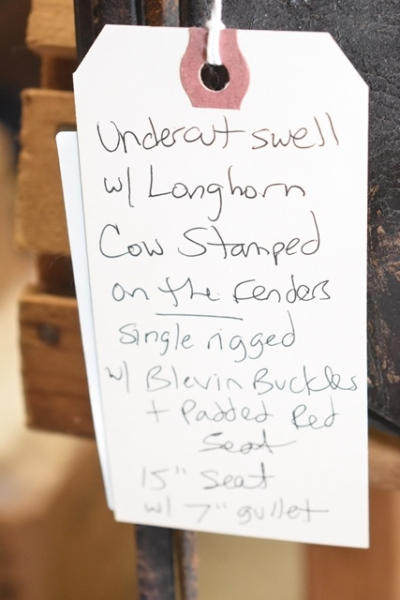 Undercut swell
w/ Longhorn
Cow Stamped
on the fenders
single rigged
w/ Blevin Buckles
+ Padded Red
Seat
15" seat
w/ 7" gullet